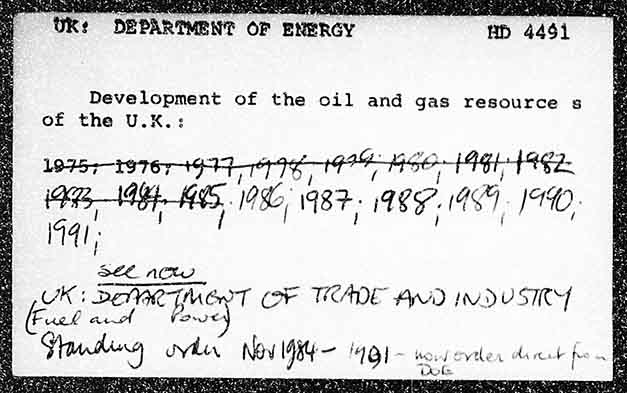 UK: DEPARTMENT OF ENERGY HD 4491
Development of the oil and gas resource s
of the U.K.:
1975; 1976; 1977; 1978; 1979; 1980; 1981; 1982
1983; 1984; 1985; 1986; 1987; 1988; 1989; 1990;
1991;
see now
UK: DEPARTMENT OF TRADE AND INDUSTRY
(Fuel and Power)
Standing order Nov 1984 - 1991 - now order direct from
DOE